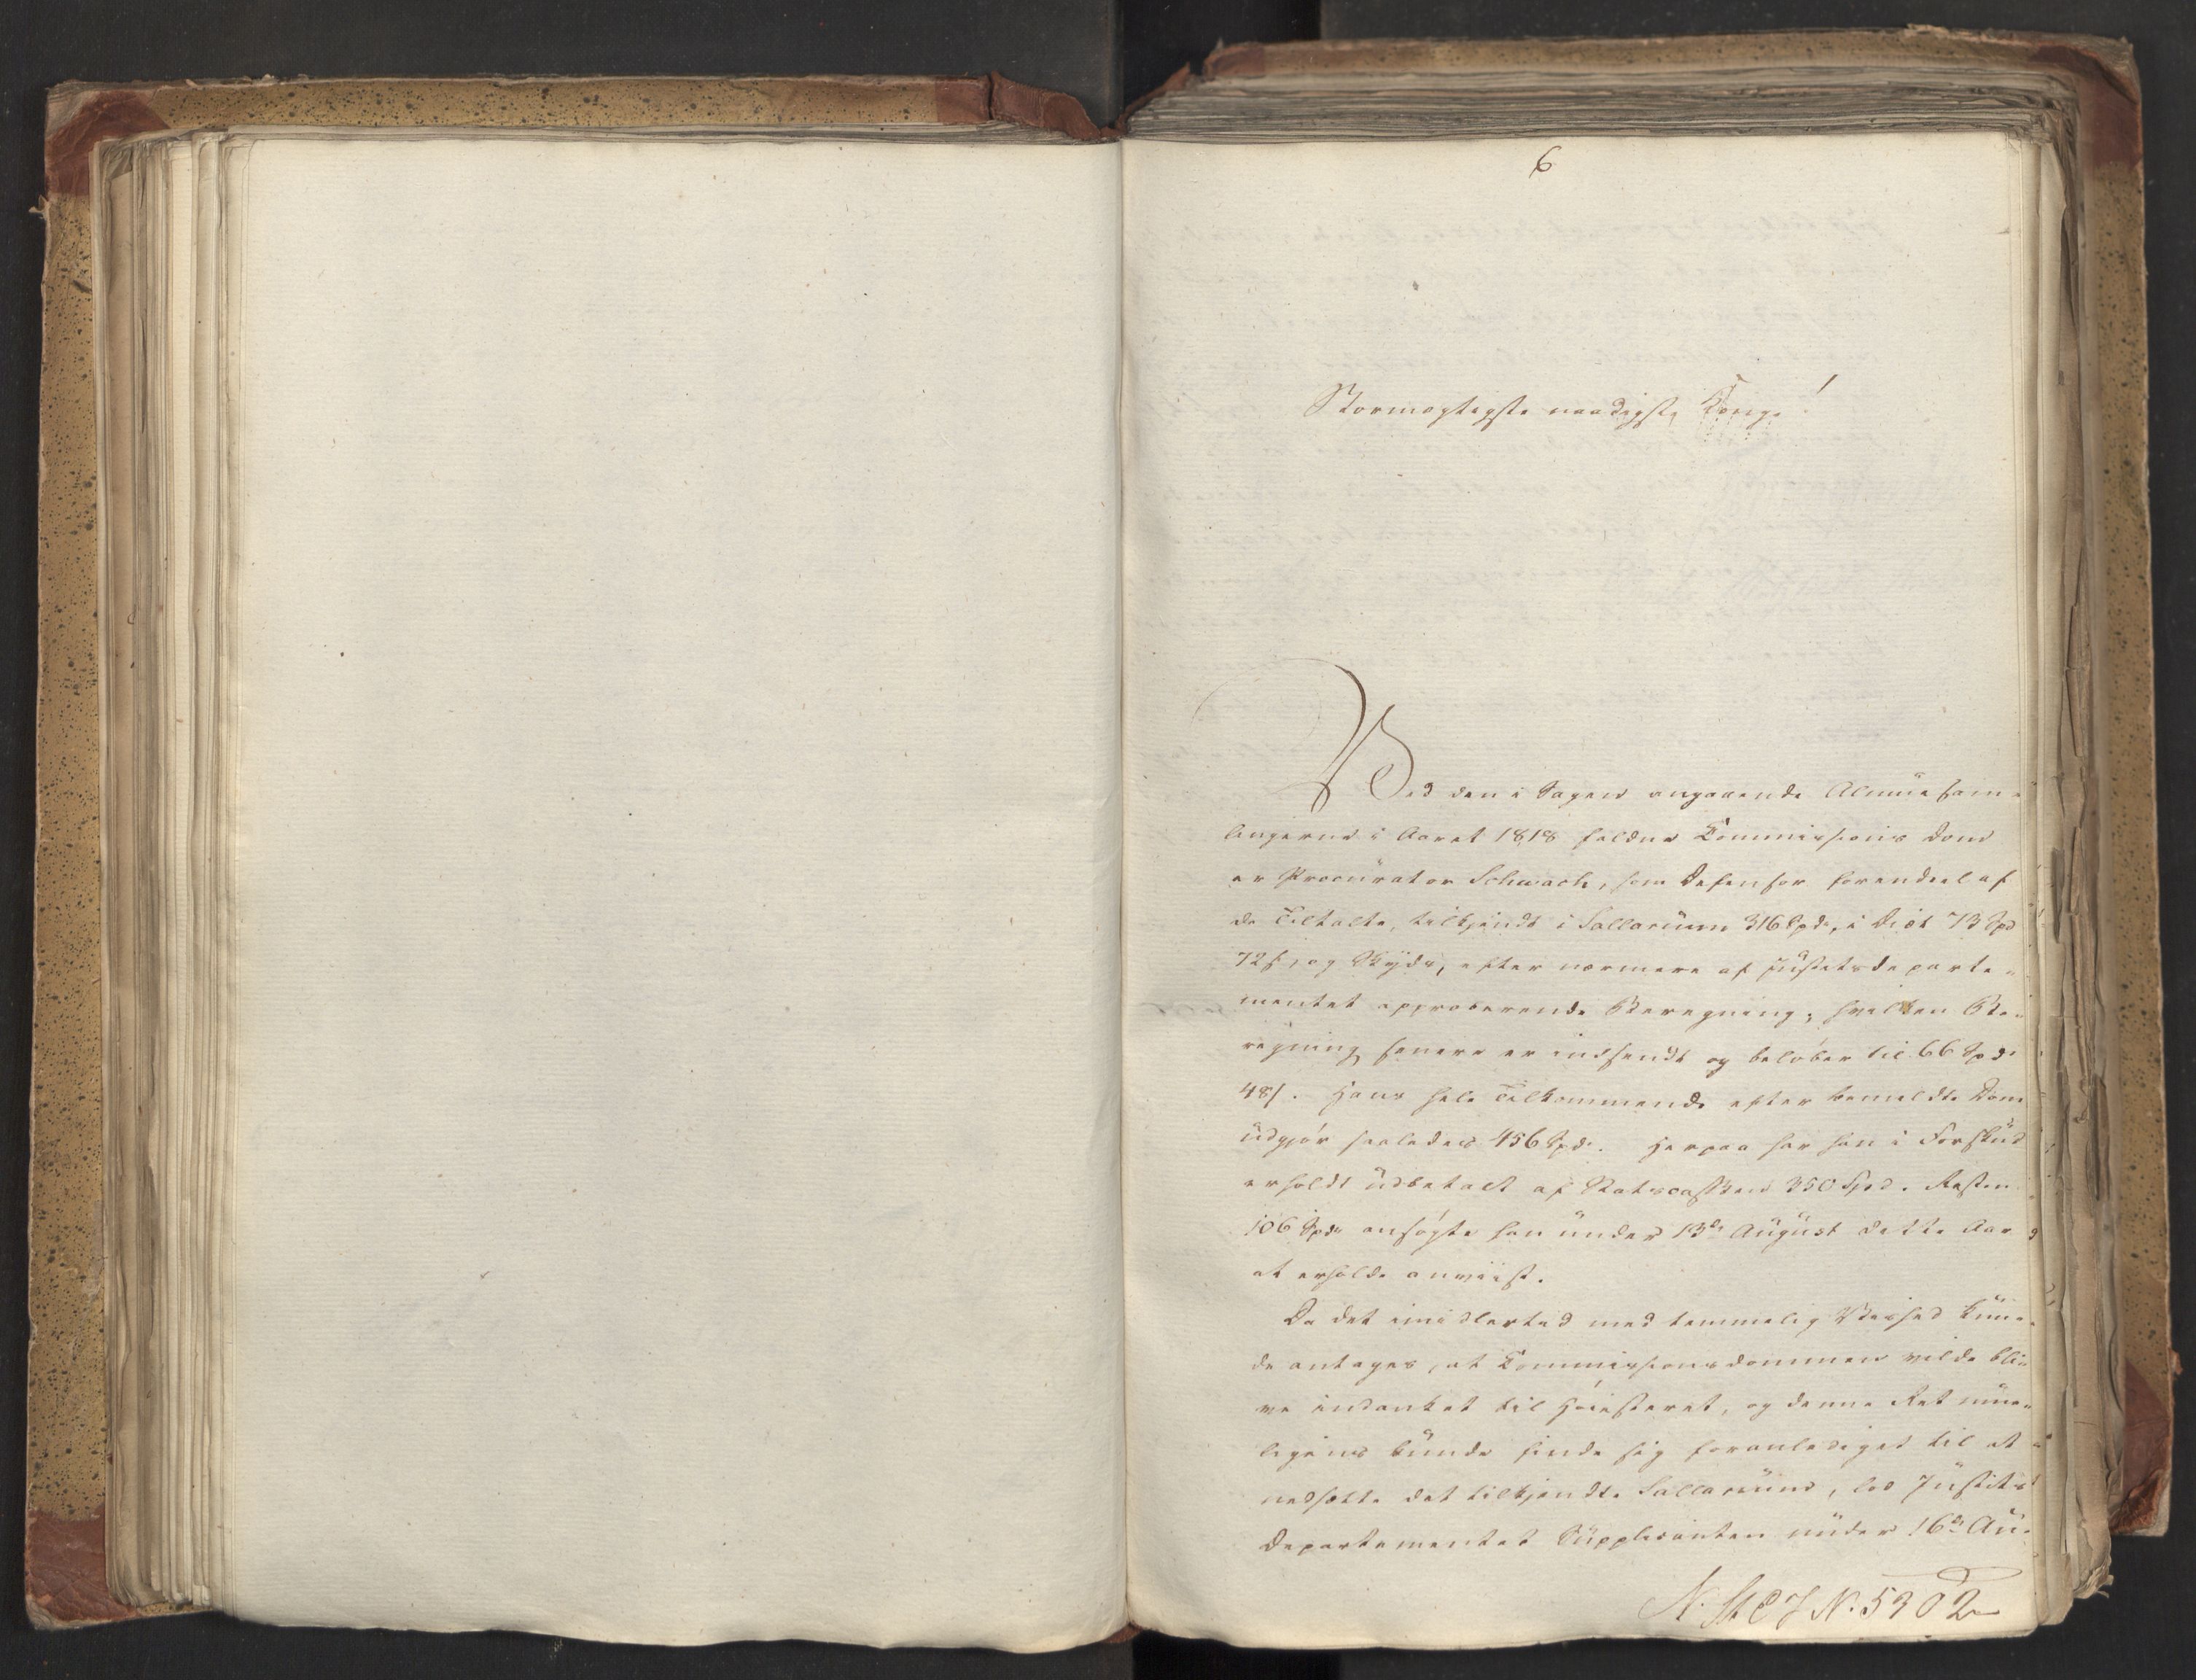 6
Stormægtigste naadigste Konge!
Ved den i Sagen angaaende Almuesam-
lingerne i Aaret 1818 faldne Commissions Dom
er Procurator Schwach, som Defensor for endeel af
de Tiltalte, tilkjendt i Sallarium 316 Spd, i Diæt 73 Spd
72 s, og Skyds, efter nærmere af Justitsdeparte-
mentet approberende Beregning, hvilken Be-
regning senere er indsendt og beløber til 66 Spd
48 s. Hans hele Tilkommende efter bemeldte Dom
udgjør saaledes 456 Spd. Herpaa har han i Forskud
erholdt udbetalt af Statscassen 350 Spd. Resten
106 Spd ansøgte han under 13de August dette Aar
at erholde anviist.
Da det imidlertid med temmelig Vished kun-
de antages, at Commissionsdommen vilde bli-
ve indanket til Høiesteret, og denne Ret mue-
ligens kunde finde sig foranlediget til at
nedsætte det tilkjendte Sallarium, lod Justits
Departementet Supplicanten under 16de Au-
N. St. C. J. N. 5302